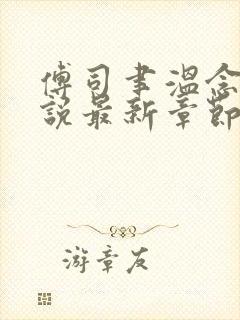 傅司聿温念
說最新章節
游章友